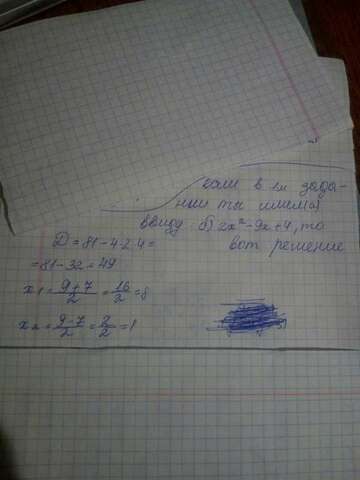 если в 1м зада-
нии ты имела
ввиду б) 2x²-9x+4, то
вот решение
D = 81-4·2·4=
=81-32=49
x1=\frac{9+7}{2}=\frac{16}{2}=8
x2=\frac{9-7}{2}=\frac{2}{2}=1